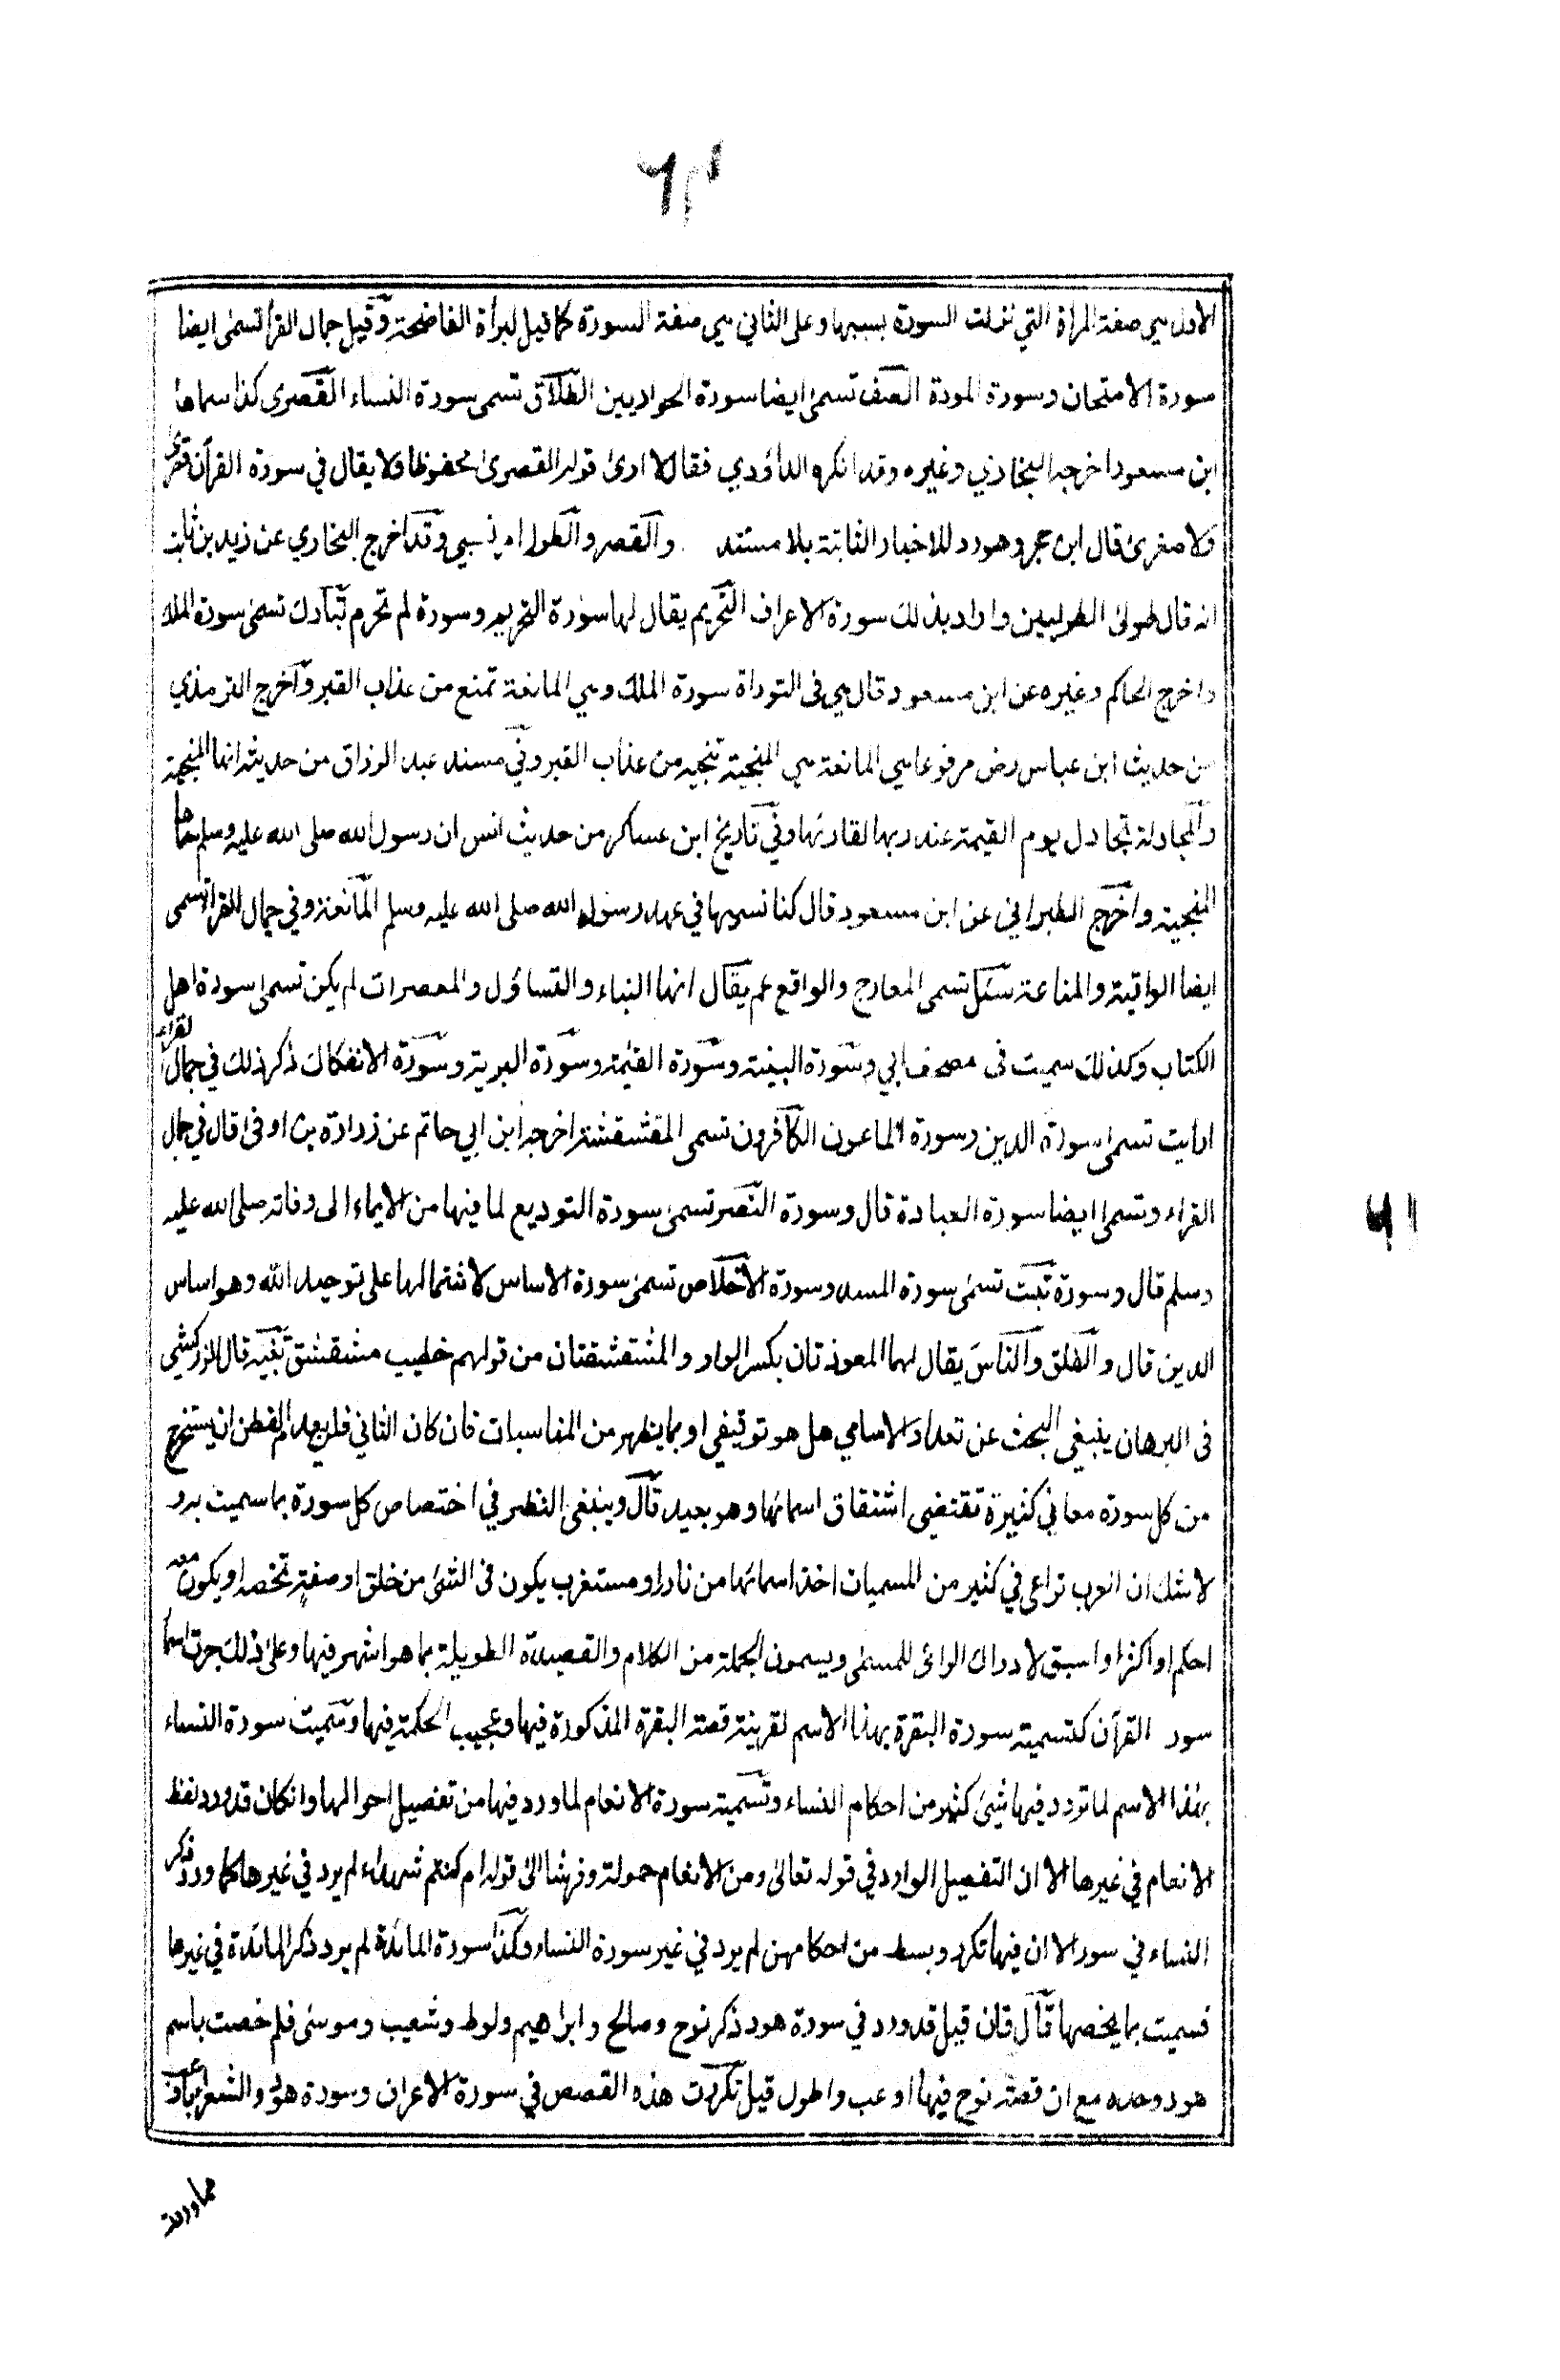 الاول هي صفة المرأة التي نزلت السورة بسببها وعلى الثاني هي صفة السورة كما قيل لبرأة الفاضحة وقيل جمال القرأ تسمى ايضا
سورة الامتحان وسورة المودة الصف تسمى ايضا سورة الحواريين الطلاق تسمى سورة النساء القصرى كذا سماها
ابن مسعود اخرجه البخاري وغيره وقد انكره الداؤدي فقال لا ارى قوله القصرى محفوظا ولا يقال في سورة القرآن قصرى
ولا صغرى قال ابن حجر وهو رد للاخبار الثابتة بلا مستند والقصر والطول امر نسبي وقد اخرج البخاري عن زيد بن ثابت
انه قال طولى الطوليين واراد بذلك سورة الاعراف التحريم يقال لها سورة التحريم وسورة لم تحرم تبارك تسمى سورة الملك
واخرج الحاكم وغيره عن ابن مسعود قال هي في التوراة سورة الملك وهي المانعة تمنع من عذاب القبر وآخرج الترمذي
من حديث ابن عباس رض مرفوعا هي المانعة هي المنجية تنجيه من عذاب القبر وفي مسند عبد الرزاق من حديثه انها المنجية
والمجادلة تجادل يوم القيمة عند ربها لقارئها وفي تاريخ ابن عساكر من حديث انس ان رسول الله صلى الله عليه وسلم سماها
المنجية واخرج الطبراني عن ابن مسعود قال كنا نسميها في عهد رسول الله صلى الله عليه وسلم المانعة وفي جمال القرا تسمى
ايضا الواقية والمناعة سئل تسمى المعارج والواقع عم يقال انها النباء والتساؤل والمعصرات لم يكن تسمى سورة اهل
الكتاب وكذلك سميت في مصحف ابي وسورة البينة وسورة القيمة وسورة البرية وسورة الانفكاك ذكر ذلك في جمال القراء
ارأيت تسمى سورة الدين وسورة الماعون الكافرون تسمى المقشقشة اخرجه ابن ابي حاتم عن زرارة بن اوفى قال في جمال
القراء وتسمى ايضا سورة العبادة قال وسورة النصر تسمى سورة التوديع لما فيها من الايماء الى وفاته صلى الله عليه
وسلم قال وسورة تبت تسمى سورة المسد وسورة الاخلاص تسمى سورة الاساس لاشتمالها على توحيد الله وهو اساس
الدين قال والفلق والناس يقال لهما المعوذتان بكسر الواو والمشقشقتان من قولهم خطيب مشقشق تنبيه قال الزركشي
في البرهان ينبغي البحث عن تعداد الاسامي هل هو توقيفي او بما يظهر من المناسبات فان كان الثاني فلم يعدم الفطن ان يستخرج
من كل سورة معاني كثيرة تقتضي اشتقاق اسمائها وهو بعيد قال وينبغي النظر في اختصاص كل سورة بما سميت به و
لا شك ان العرب تراعى في كثير من المسميات اخذ اسمائها من نادر او مستغرب يكون في الشئ من خلق او صفة تخصه او يكون معه
احكم او اكثر او اسبق لادراك الرائى للمسمى ويسمون الجملة من الكلام والقصيدة الطويلة بما هو اشهر فيها وعلى ذلك جرت اسما
سور القرآن كتسمية سورة البقرة بهذا الاسم لقرينة قصة البقرة المذكورة فيها وعجيب الحكمة فيها وسميت سورة النساء
بهذا الاسم لما تردد فيها شئ كثير من احكام النساء وتسمية سورة الانعام لما ورد فيها من تفصيل احوالها وانكان قد ورد لفظ
الانعام في غيرها الا ان التفصيل الوارد في قوله تعالى ومن الانعام حمولة وفرشا الى قوله ام كنتم شهداء لم يرد في غيرها كما ورد ذكر
النساء في سور الا ان فيها تكرر وبسط من احكامهن لم يرد في غير سورة النساء وكذا سورة المائدة لم يرد ذكر المائدة في غيرها
فسميت بما يخصها قال فان قيل قد ورد في سورة هود ذكر نوح وصالح وابراهيم ولوط وشعيب وموسى فلم خصت باسم
هود وحده مع ان قصة نوح فيها اوعب واطول قيل تكررت هذه القصص في سورة الاعراف وسورة هود والشعراء باوعب
مما وردت